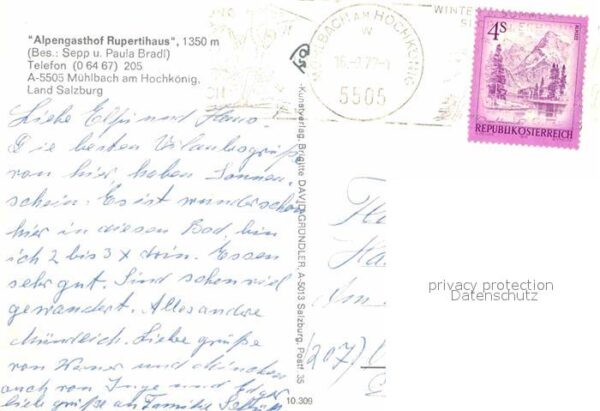 "Alpengasthof Rupertihaus", 1350 m
(Bes.: Sepp u. Paula Bradl)
Telefon (0 64 67) 205
A-5505 Mühlbach am Hochkönig,
Land Salzburg
MÜHLBACH AM HOCHKÖNIG
5505
WINTER
4S
REPUBLIK ÖSTERREICH
Liebe Elfi und
Die besten Urlaubsgrüße
von hier haben Sonnen-
schein. Es ist wunderschön
hier in diesen Bad, bin
ich 2 bis 3 x drin. Essen
sehr gut. Sind schon viel
gewandert. Alles andre
mündlich. Liebe Grüße
von und
auch von Inge und
liebe grüße an Familie
Kunstverlag Brigitte DAVID-GRÜNDLER, A-5013 Salzburg, Postf. 35
10.309
privacy protection
Datenschutz